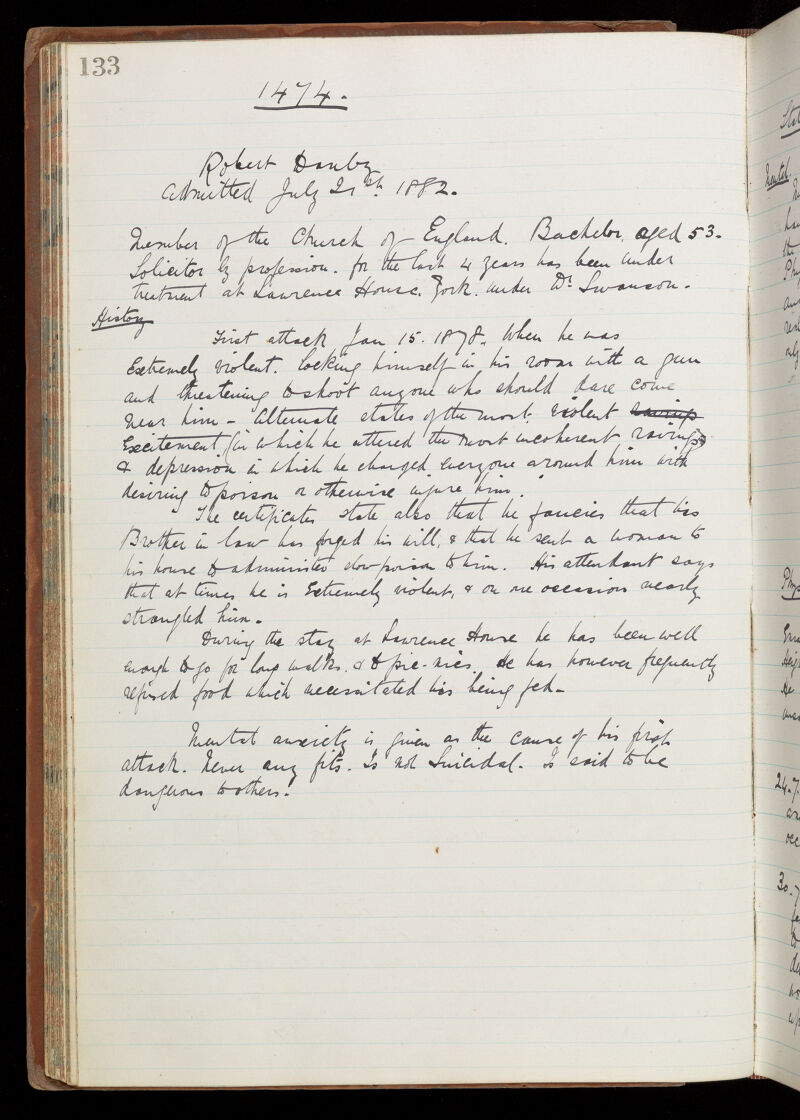 133
1474.
Robert Danby
Admitted July 21st. 1882.
Member of the Church of England. Bachelor, aged 53.
Solicitor by profession. for the last 4 years has been under
treatment at Lawrence House, York. under Dr. Swanson.
History
First attack Jan 15. 1878. When he was
Extremely violent. locking himself in his room with a gun
and threatening to shoot anyone who should dare come
near him – Alternate states of the most violent ravings
Excitement (in which he uttered the most incoherent ravings)
& depression in which he charged everyone around him with
desiring to poison or otherwise injure him.
The certificates state also that he fancies that his
Brother in law has forged his will, & that he sent a woman to
his house to administer slow poison to him. His attendant says
that at times he is Extremely violent, & on one occasion nearly
strangled him.
During the stay at Lawrence House he has been well
enough to go for long walks, & to pic-nics. He has however frequently
refused food which necessitated his being fed –
Mental anxiety is given as the cause of his first
attack. Never any fits. Is not Suicidal. Is said to be
dangerous to others.
Mental
24.7
30.7